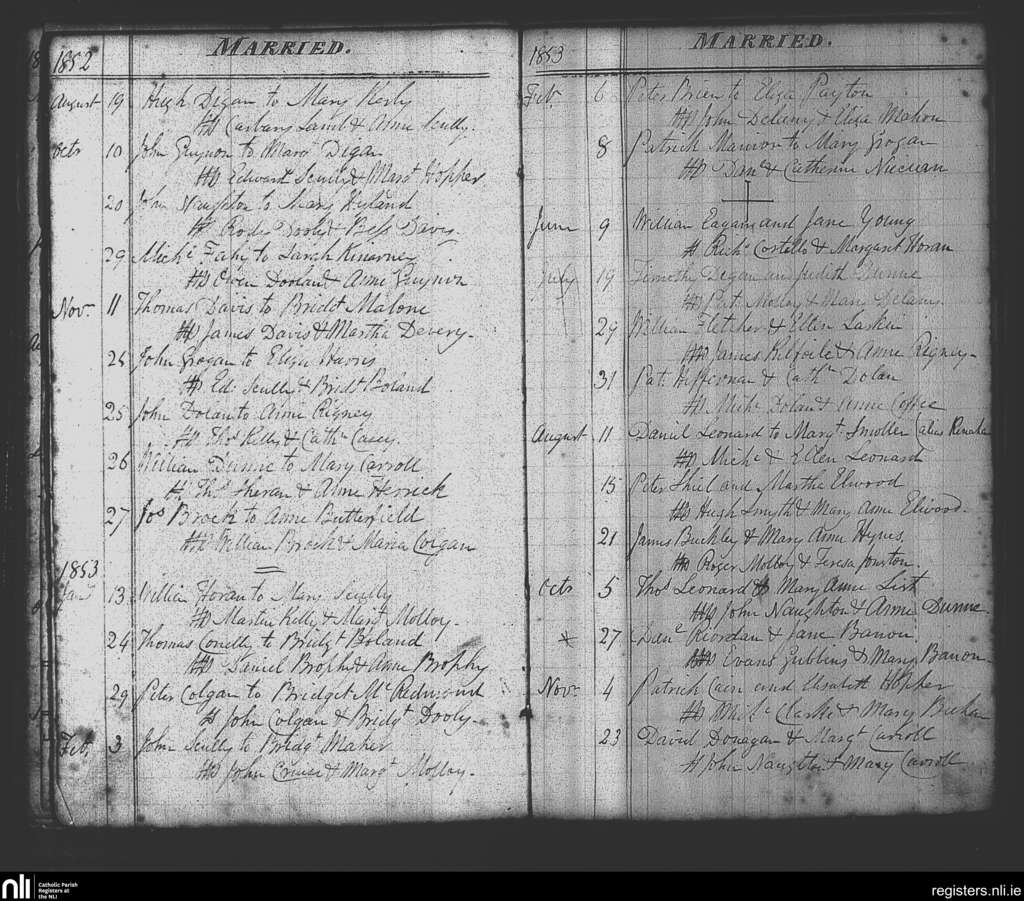 1852 MARRIED.
August 19 Hugh Digan to Mary Kerly
Lamb & Anne Scully.
Octr 10 John Guynon to Margt Digan
Edward Scully & Margt Hopper
20 John Naughton to Mary Hyland
Dooly & Bess Davis.
29 Michl Fahy to Sarah Kinarney
Owen Doolan & Anne Guynon
Nov. 11 Thomas Davis to Bridt Malone
James Davis & Martha Devery.
John Grogan to Eliza Harris
Ed. Scully & Bridt Boland
25 John Dolan to Anne Rigney
Thos Kelly & Cathn Casey.
26 William Dunne to Mary Carroll
Thos & Anne Herrick
27 Jos Brock to Anne Butterfield
William Brock & Maria Colgan
1853
Jany 13 William Horan to Mary Scully
Martin Kelly & Margt Molloy.
24 Thomas Conelly to Bridgt Boland
Daniel Brophy & Anne Brophy
29 Peter Colgan to Bridget Mc Redmond
John Colgan & Bridgt Dooly.
Feb. 3 John Scully to Bridgt Maher
John & Margt Molloy.
1853 MARRIED.
Feb. 6 Peter Brien to Eliza Payton
John Delany & Eliza Mahon
8 Patrick Mannion to Mary Grogan
Danl & Catherine
June 9 William Eagan and Jane Young
Richd Costello & Margaret Horan
July 19 Timothy Degan an Judith Dunne
Pat. Molloy & Mary Delany
29 William Fletcher & Ellen Larkin
James Kilfoile & Anne Rigney.
31 Pat. Heffernan & Cathn Dolan
Michl Dolan & Anne Coffee
August 11 Daniel Leonard to Margt Smollen (alias
Michl & Ellen Leonard
15 Peter Shiel and Martha Elwood
Hugh Smyth & Mary Anne Elwood.
21 James Buckley & Mary Anne Hynes
Roger Molloy & Teresa
Octr 5 Thos Leonard to Mary Anne List
John Naughton & Anne Dunne
x 27 Danl Riordan & Jane Banon.
Evans Gubbins & Mary Banon
Novr 4 Patrick Cain and Elsabeth Hopper
Michl Clarke & Mary
23 David Donagan & Margt Carroll
John Naughton & Mary Carroll
nli
Catholic Parish
Registers at
the NLI
registers.nli.ie